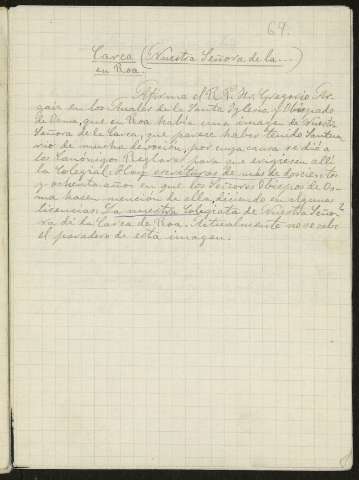 69.
Carca (Nuestra Señora de la ...)
en Roa.
Afirma el R. P. Mo. Gregorio Ar-
gaiz en los Anales de la Santa Iglesia y Obispado
de Osma, que en Roa había una imagen de Nuestra
Señora de la Carca, que parece haber tenido Santua-
rio de mucha devoción, por cuya causa se dió a
los Canónigos Reglares para que erigiesen allí
la Colegial. Hay escrituras de más de doscientos
y ochenta años en que los Señores Obispos de Os-
ma hacen mención de ella, diciendo en algunas
licencias: La nuestra Colegiata de Nuestra Seño-
ra de la Carca de Roa. Actualmente no se sabe
el paradero de esta imagen.